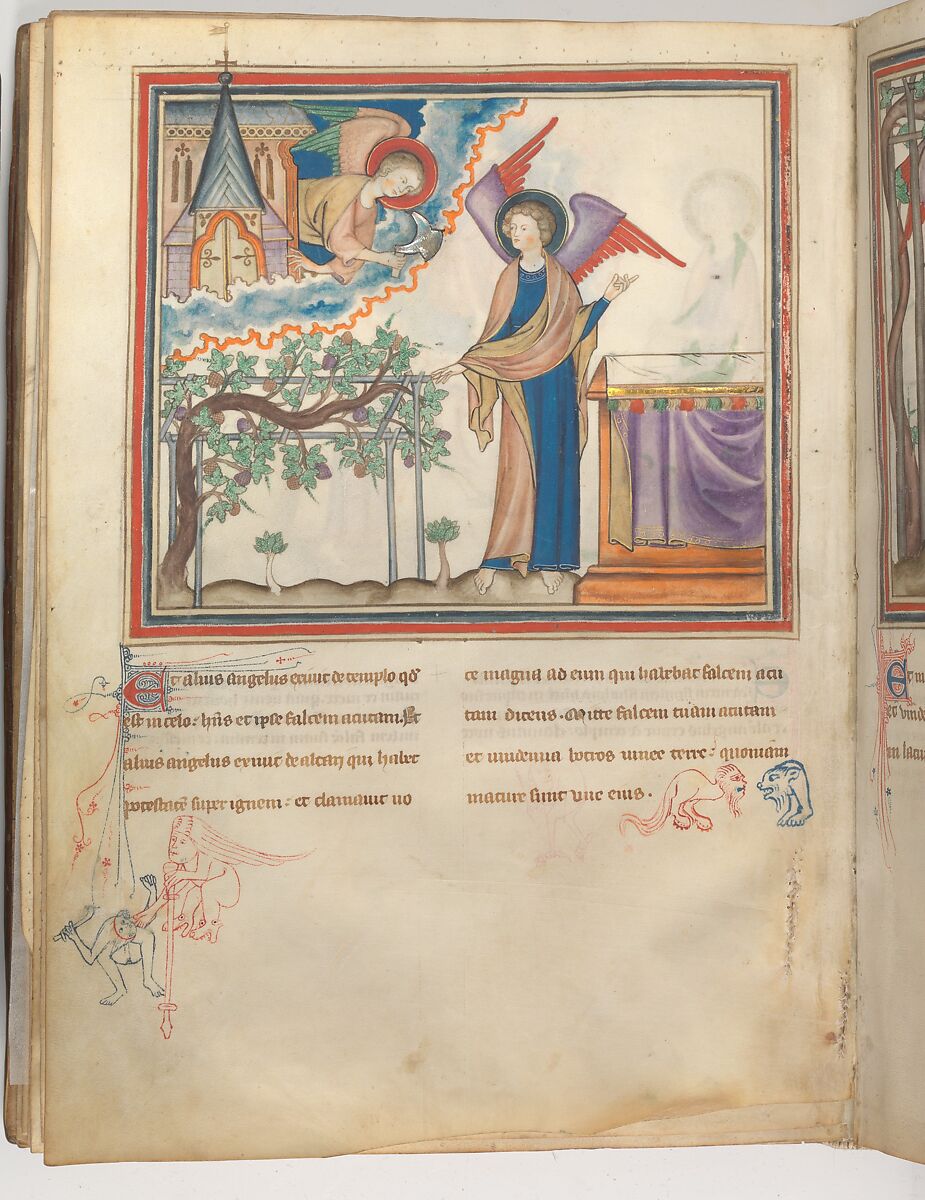 Et alius angelus exiuit de templo qd̄
est in celo: hn̄s et ipse falcem acutam. Et
alius angelus exiuit de altari qui habet
potestatē super ignem: et clamauit uo
ce magna ad eum qui habebat falcem acu
tam dicens. Mitte falcem tuam acutam
et uindemia botros uinee terre: quoniam
mature sunt uue eius.
Et